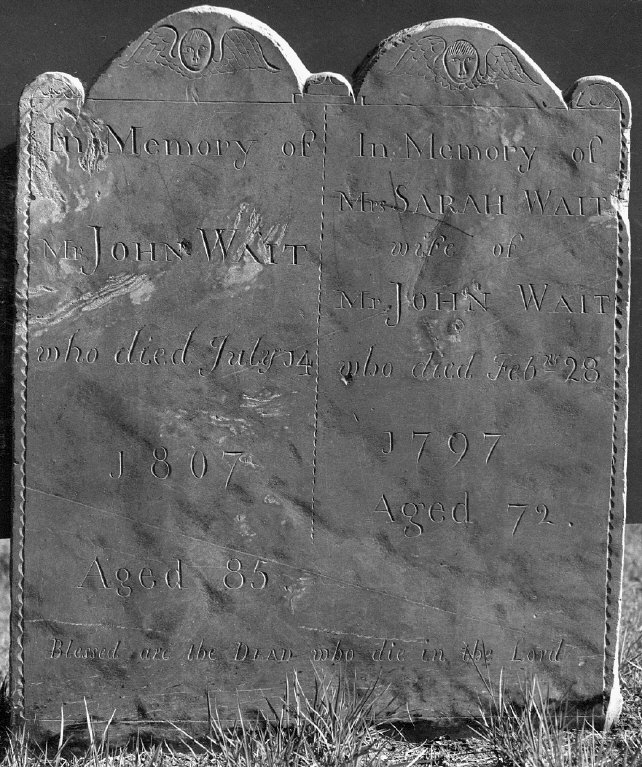 In Memory of
Mr. JOHN WAIT
who died July 14
1807
Aged 85
In Memory of
Mrs SARAH WAIT
wife of
Mr. JOHN WAIT
who died Febry 28
1797
Aged 72.
Blessed are the DEAD who die in the Lord